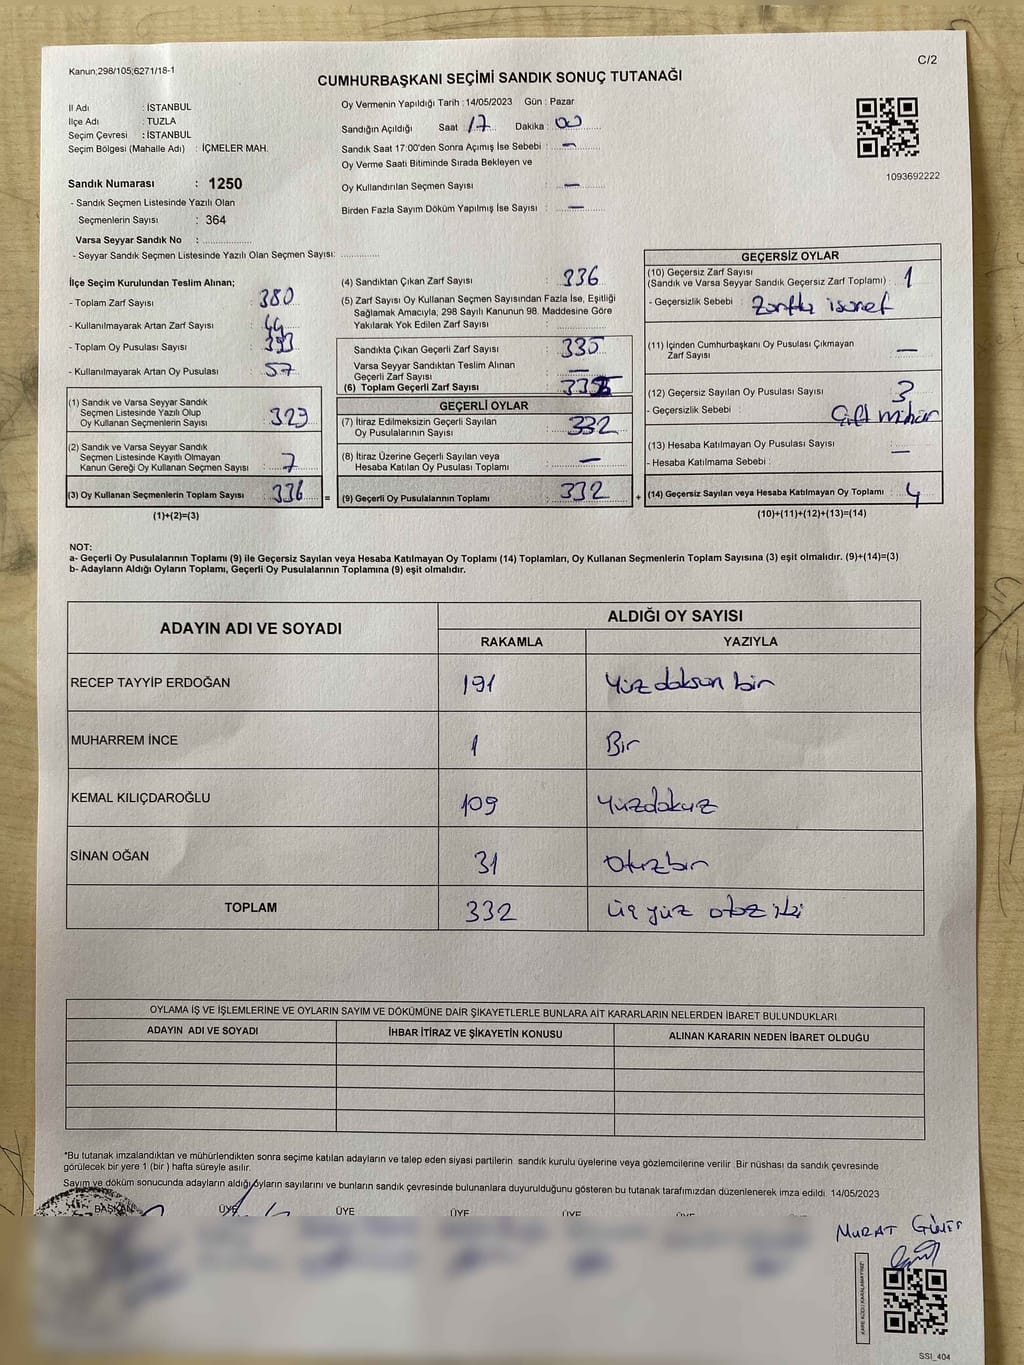 Kanun;298/105;6271/18-1
C/2
CUMHURBAŞKANI SEÇİMİ SANDIK SONUÇ TUTANAĞI
İl Adı : İSTANBUL
İlçe Adı : TUZLA
Seçim Çevresi : İSTANBUL
Seçim Bölgesi (Mahalle Adı) : İÇMELER MAH.
Oy Vermenin Yapıldığı Tarih : 14/05/2023 Gün : Pazar
Sandığın Açıldığı Saat : 17 Dakika : 00
Sandık Saat 17:00'den Sonra Açımış İse Sebebi : —
Oy Verme Saati Bitiminde Sırada Bekleyen ve
Oy Kullandırılan Seçmen Sayısı : —
Birden Fazla Sayım Döküm Yapılmış İse Sayısı : —
1093692222
Sandık Numarası : 1250
- Sandık Seçmen Listesinde Yazılı Olan
Seçmenlerin Sayısı : 364
Varsa Seyyar Sandık No : ................
- Seyyar Sandık Seçmen Listesinde Yazılı Olan Seçmen Sayısı: ............
İlçe Seçim Kurulundan Teslim Alınan;
- Toplam Zarf Sayısı : 380
- Kullanılmayarak Artan Zarf Sayısı : 44
- Toplam Oy Pusulası Sayısı : 393
- Kullanılmayarak Artan Oy Pusulası : 57
(1) Sandık ve Varsa Seyyar Sandık
Seçmen Listesinde Yazılı Olup
Oy Kullanan Seçmenlerin Sayısı : 329
(2) Sandık ve Varsa Seyyar Sandık
Seçmen Listesinde Kayıtlı Olmayan
Kanun Gereği Oy Kullanan Seçmen Sayısı : 7
(3) Oy Kullanan Seçmenlerin Toplam Sayısı : 336
(1)+(2)=(3)
(4) Sandıktan Çıkan Zarf Sayısı : 336
(5) Zarf Sayısı Oy Kullanan Seçmen Sayısından Fazla İse, Eşitliği
Sağlamak Amacıyla, 298 Sayılı Kanunun 98. Maddesine Göre
Yakılarak Yok Edilen Zarf Sayısı : ............
Sandıkta Çıkan Geçerli Zarf Sayısı : 335
Varsa Seyyar Sandıktan Teslim Alınan
Geçerli Zarf Sayısı : —
(6) Toplam Geçerli Zarf Sayısı : 335
GEÇERLİ OYLAR
(7) İtiraz Edilmeksizin Geçerli Sayılan
Oy Pusulalarının Sayısı : 332
(8) İtiraz Üzerine Geçerli Sayılan veya
Hesaba Katılan Oy Pusulası Toplamı : —
= (9) Geçerli Oy Pusulalarının Toplamı : 332
GEÇERSİZ OYLAR
(10) Geçersiz Zarf Sayısı
(Sandık ve Varsa Seyyar Sandık Geçersiz Zarf Toplamı) : 1
- Geçersizlik Sebebi : Zarfta işaret
(11) İçinden Cumhurbaşkanı Oy Pusulası Çıkmayan
Zarf Sayısı : —
(12) Geçersiz Sayılan Oy Pusulası Sayısı : 3
- Geçersizlik Sebebi : Çift mühür
(13) Hesaba Katılmayan Oy Pusulası Sayısı : —
- Hesaba Katılmama Sebebi :
+ (14) Geçersiz Sayılan veya Hesaba Katılmayan Oy Toplamı : 4
(10)+(11)+(12)+(13)=(14)
NOT:
a- Geçerli Oy Pusulalarının Toplamı (9) ile Geçersiz Sayılan veya Hesaba Katılmayan Oy Toplamı (14) Toplamları, Oy Kullanan Seçmenlerin Toplam Sayısına (3) eşit olmalıdır. (9)+(14)=(3)
b- Adayların Aldığı Oyların Toplamı, Geçerli Oy Pusulalarının Toplamına (9) eşit olmalıdır.
ADAYIN ADI VE SOYADI
ALDIĞI OY SAYISI
RAKAMLA YAZIYLA
RECEP TAYYİP ERDOĞAN 191 Yüz doksan bir
MUHARREM İNCE 1 Bir
KEMAL KILIÇDAROĞLU 109 Yüzdokuz
SİNAN OĞAN 31 Otuzbir
TOPLAM 332 Üç yüz otuz iki
OYLAMA İŞ VE İŞLEMLERİNE VE OYLARIN SAYIM VE DÖKÜMÜNE DAİR ŞİKAYETLERLE BUNLARA AİT KARARLARIN NELERDEN İBARET BULUNDUKLARI
ADAYIN ADI VE SOYADI İHBAR İTİRAZ VE ŞİKAYETİN KONUSU ALINAN KARARIN NEDEN İBARET OLDUĞU
*Bu tutanak imzalandıktan ve mühürlendikten sonra seçime katılan adayların ve talep eden siyasi partilerin sandık kurulu üyelerine veya gözlemcilerine verilir .Bir nüshası da sandık çevresinde
görülecek bir yere 1 (bir ) hafta süreyle asılır.
Sayım ve döküm sonucunda adayların aldığı oyların sayılarını ve bunların sandık çevresinde bulunanlara duyurulduğunu gösteren bu tutanak tarafımızdan düzenlenerek imza edildi. 14/05/2023
BAŞKAN ÜYE ÜYE ÜYE ÜYE ÜYE
MURAT GÜNEŞ
KARE KODU KARALAMAYINIZ!
SSI_404